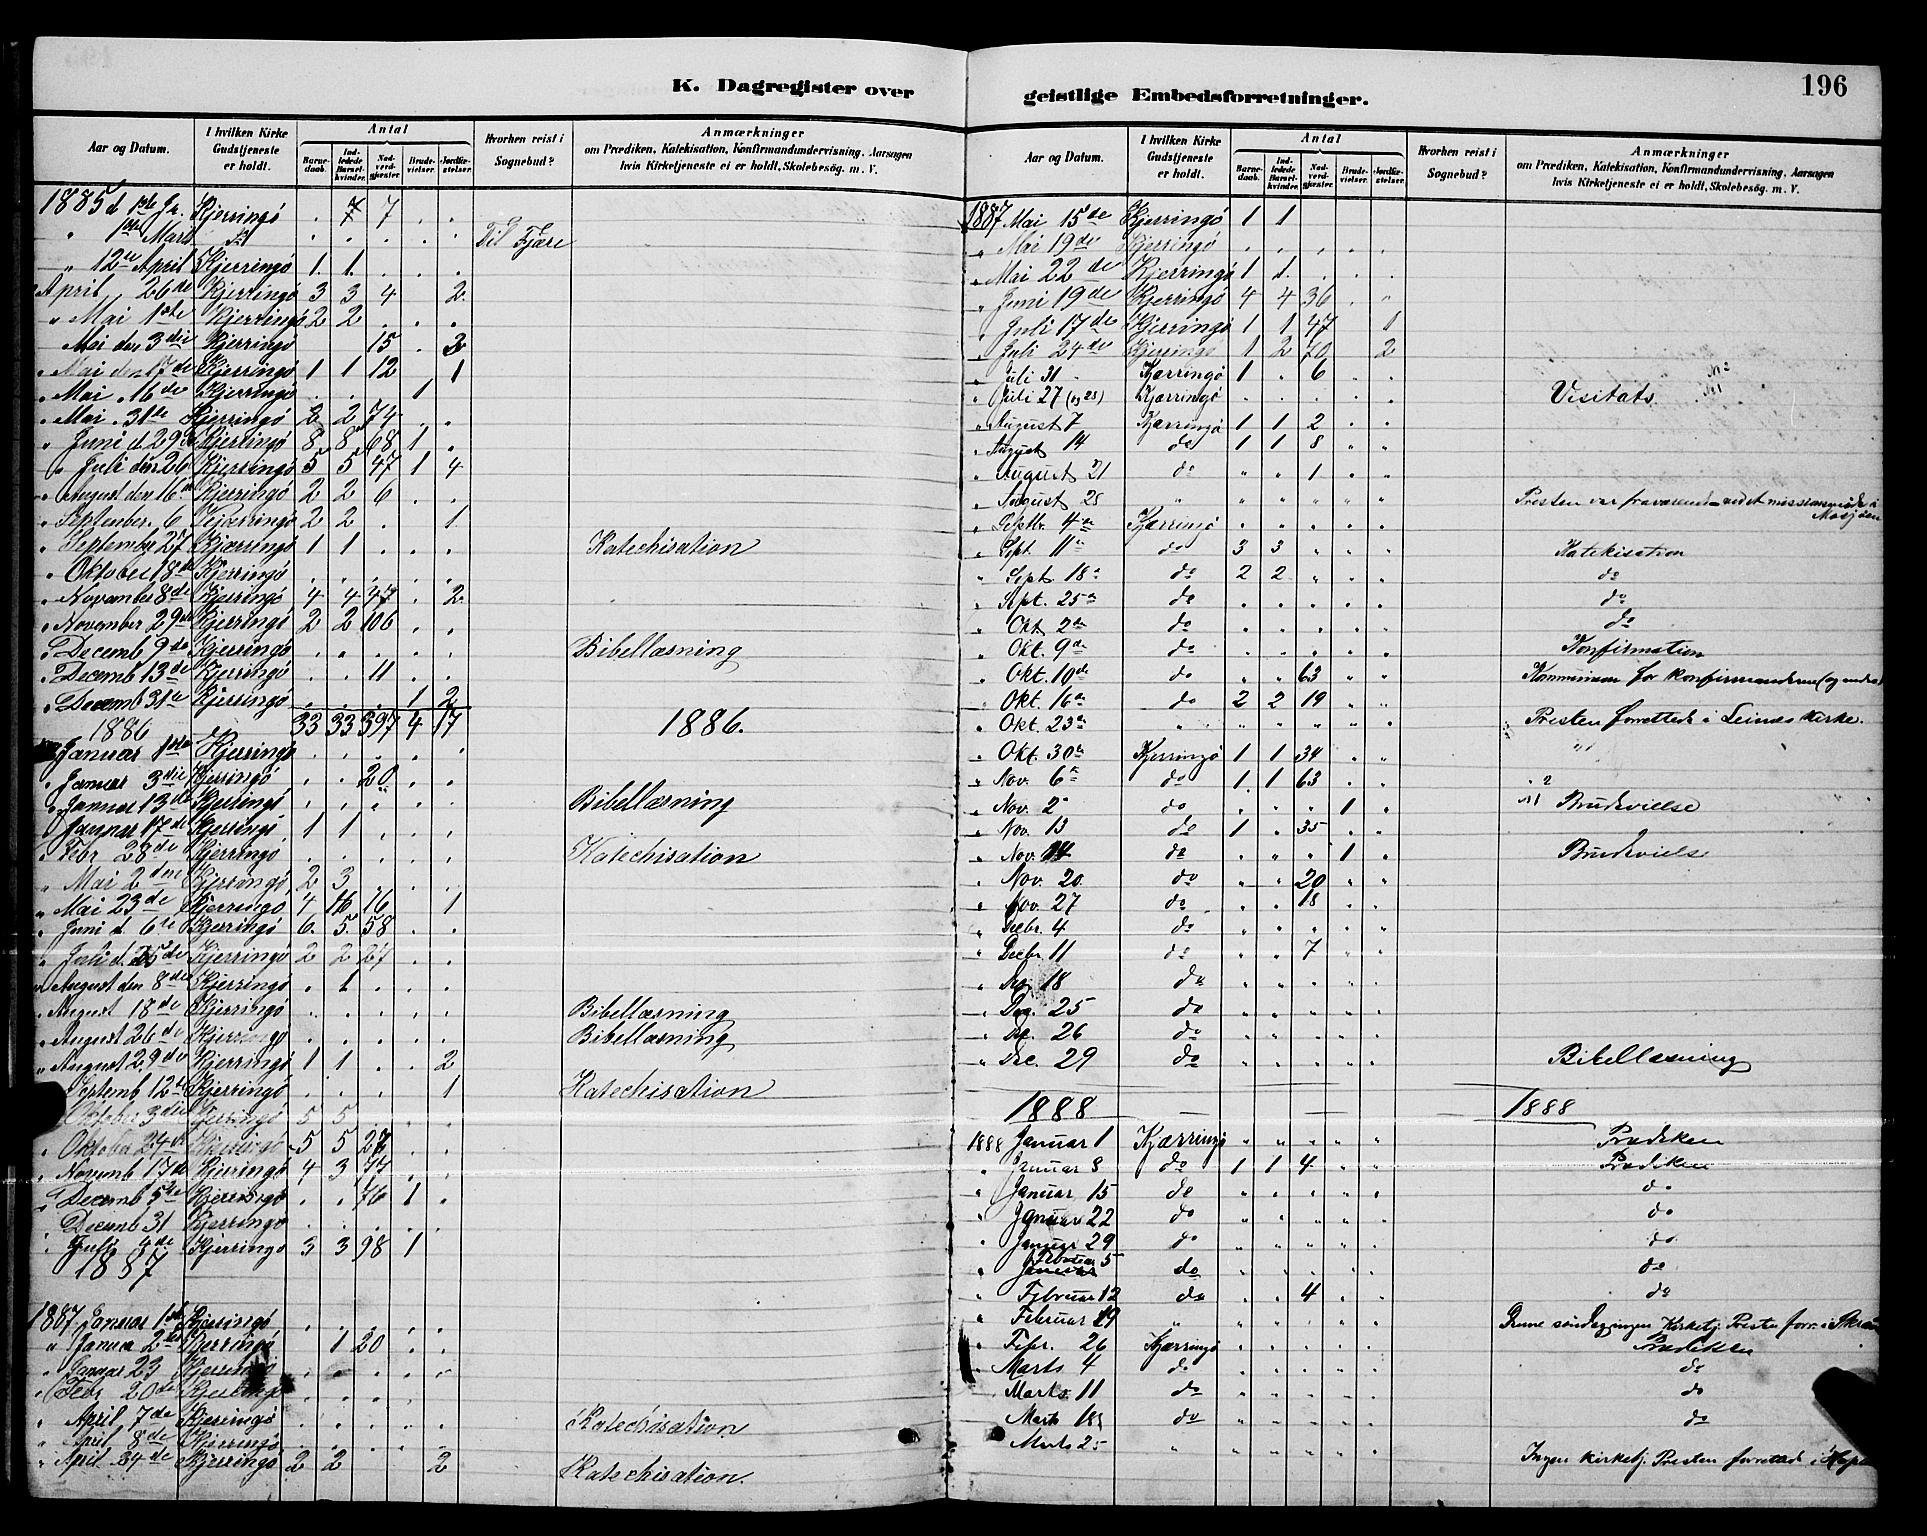 196
K. Dagregister over geistlige Embedsforretninger.
Aar og Datum. I hvilken Kirke Gudstjeneste er holdt. Antal Barnedaab. Indledede Barselkvinder. Nadverdgjester. Brudevielser. Jordfæstelser. Hvorhen reist i Sognebud? Anmærkninger om Prædiken, Katekisation, Konfirmandundervisning, Aarsagen hvis Kirketjeneste ei er holdt, Skolebesøg. m. V.
1885 d 1ste Jr. Kjerringø . 7 7 . .
" 1ste Marts do . . . . . Til Fjære
" 12te April Kjerringø 1 1 . . .
April 26de Kjerringø 3 3 4 . 2
" Mai 1ste Kjerringø 2 2 . . .
Mai den 3die Kjerringø 15 . 3
" Mai den 17de Kjerringø 1 1 12 1
" Mai 16de Kjerringø . . . 1
" Mai 31te Kjerringø 2 2 74 . .
" Juni d. 29de Kjerringø 8 8 68 1 .
" Juli den 26 Kjerringø 5 5 47 1 4
" August den 16 Kjerringø 2 2 6 . .
" September 6 Kjærringø 2 2 . 1
" September 27 Kjærringø 1 1 . . . Katechisation
" Oktober 18de Kjerringø . . . . .
" November 8de Kjerringø 4 4 47 . 2
" November 29de Kjerringø 2 2 106 . .
" Decemb 9de Kjerringø . . . . . Bibellæsning
" Decemb 13de Kjerringø . . 11 . .
" Decemb 31te Kjerringø . . . 1 2
1886 33 33 397 4 17 1886.
Januar 1ste Kjerringø . . . . .
" Januar 3die Kjerringø . . 20 . .
" Januar 13de Kjerringø . . . . . Bibellæsning
" Januar 17de Kjerringø 1 1 . . .
" Febr 28de Kjerringø . . . . . Katechisation
" Mai 2den Kjerringø 2 3 . .
" Mai 23de Kjerringø 4 16 . 1
" Juni d. 6te Kjerringø 6 5 58 . .
" Juli d. 25de Kjerringø 2 2 27 . .
" August den 8de Kjerringø . 1 . . .
" August 18de Kjerringø . . . . . Bibellæsning
" August 26de Kjerringø . . . . . Bibellæsning
" August 29de Kjerringø 1 1 . . 2
" Septemb 12te Kjerringø . . . 1 Katechisation
Oktober 3die Kjerringø 5 5 . . .
" Oktober 24de Kjerringø 5 5 27 . .
" Novemb 17de Kjerringø 4 3 77 . .
" Decemb 5te Kjerringø . . 76 1 .
" Decemb 31 Kjerringø . . . . .
" Juli 4de Kjerringø 3 3 98 1
1887
1887 Januar 1ste Kjerringø . . . . .
" Januar 2den Kjerringø 1 20 . .
" Januar 23 Kjerringø . . . . .
" Febr 20de Kjerringø . . . . .
" April 7de Kjerringø . . . . . Katechisation
" April 8de Kjerringø . . . . .
" April 24de Kjerringø 2 2 2 Katechisation
Aar og Datum. I hvilken Kirke Gudstjeneste er holdt. Antal Barnedaab. Indledede Barselkvinder. Nadverdgjester. Brudevielser. Jordfæstelser. Hvorhen reist i Sognebud? Anmærkninger om Prædiken, Katekisation, Konfirmandundervisning, Aarsagen hvis Kirketjeneste ei er holdt, Skolebesøg. m. V.
1887 Mai 15de Kjerringø 1 1
" Mai 19de Kjerringø . . . . .
" Mai 22de Kjerringø 1 1 . . .
" Juni 19de Kjerringø 4 4 36 . "
" Juli 17de Kjerringø 1 1 47 1
" Juli 24de Kjerringø 1 2 70 2
" Juli 31 Kjærringø 1 . 6 . .
" Juli 27 (og 28) Kjærringø . . . . . Visitats
" August 7 Kjærringø 1 1 2 . .
" August 14 do 1 1 8 . .
" August 21 do " " 1 . .
" August 28 " " " " " " Presten var fraværende ved et missionsmøde i Mosjøen
" Septbr. 4de Kjærringø " " " " "
" Sept. 11te do 3 3 " " " Katekisation
" Sept. 18de do 2 2 " " " do
" Sept. 25de do " " " " " do
" Okt 2den do " " " " " do
" Okt. 9de do " " " " " Konfirmation
" Okt. 10de do " " 63 " " Kommunion for konfirmanderne (og andre)
" Okt 16de do 2 2 19 " "
" Okt. 23de " " " " " " Presten forrettede i Leines Kirke.
" Okt. 30te Kjerringø 1 1 34 " "
" Nov. 6te do 1 1 63 " "
" Nov. 2den do " " " 1 " Brudevielse
" Nov. 13 do 1 " 35 " "
" Nov. 14 do " " " 1 " Brudevielse
" Nov. 20 do " " 20 " "
" Nov. 27 do " " 18 " "
" Decbr. 4 do " " " " "
" Decbr 11 do " " 7 " "
" Dec 18 do " " " " "
" Dec. 25 do " " " " "
" Dec. 26 do " " " " "
" Dec. 29 do " " " " " Bibellæsning
1888 — — — 1888
1888 Januar 1 Kjærringø " " " " " Prædiken
" Januar 8 do 1 1 4 " " Prædiken
" Januar 15 do " " " " " do
" Januar 22 do " " " " " do
" Januar 29 do " " " " " do
" Februar 5 do " " " " " do
" Februar 12 do " " 4 " " do
" Februar 19 " " " " " " Denne søndag ingen Kirketj. Presten forr. i
" Febr. 26 Kjærringø " " " " " Prædiken
" Marts 4 do " " " " " do
" Marts 11 do " " " " " do
" Marts 18 do " " " " " do
" Marts 25 " " " " " " Ingen kirketj. Presten forrettede i